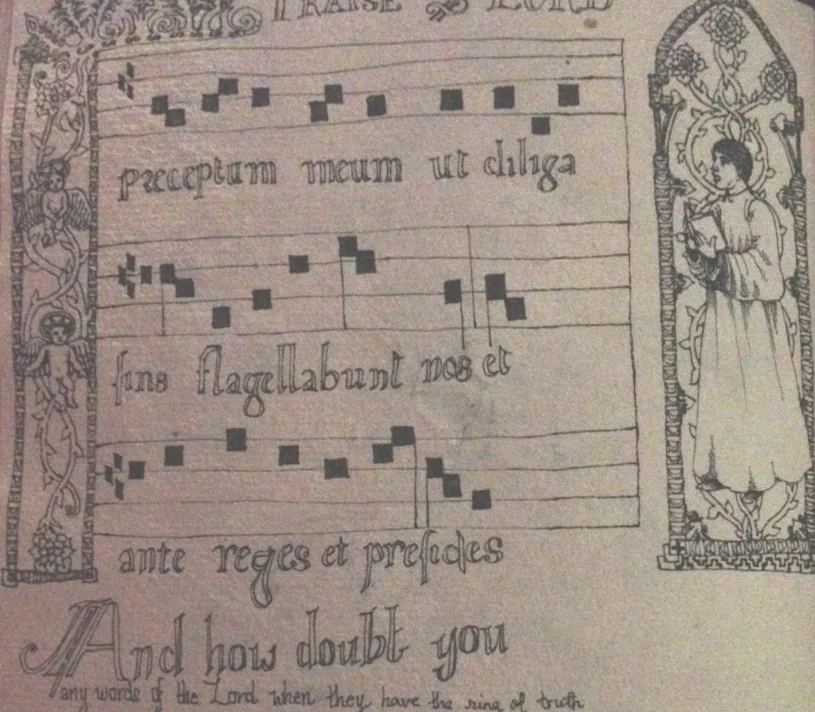 PRAISE LORD
preceptum meum ut diliga
sins flagellabunt nos et
ante reges et presides
And how doubt you
any words of the Lord when they have the ring of truth